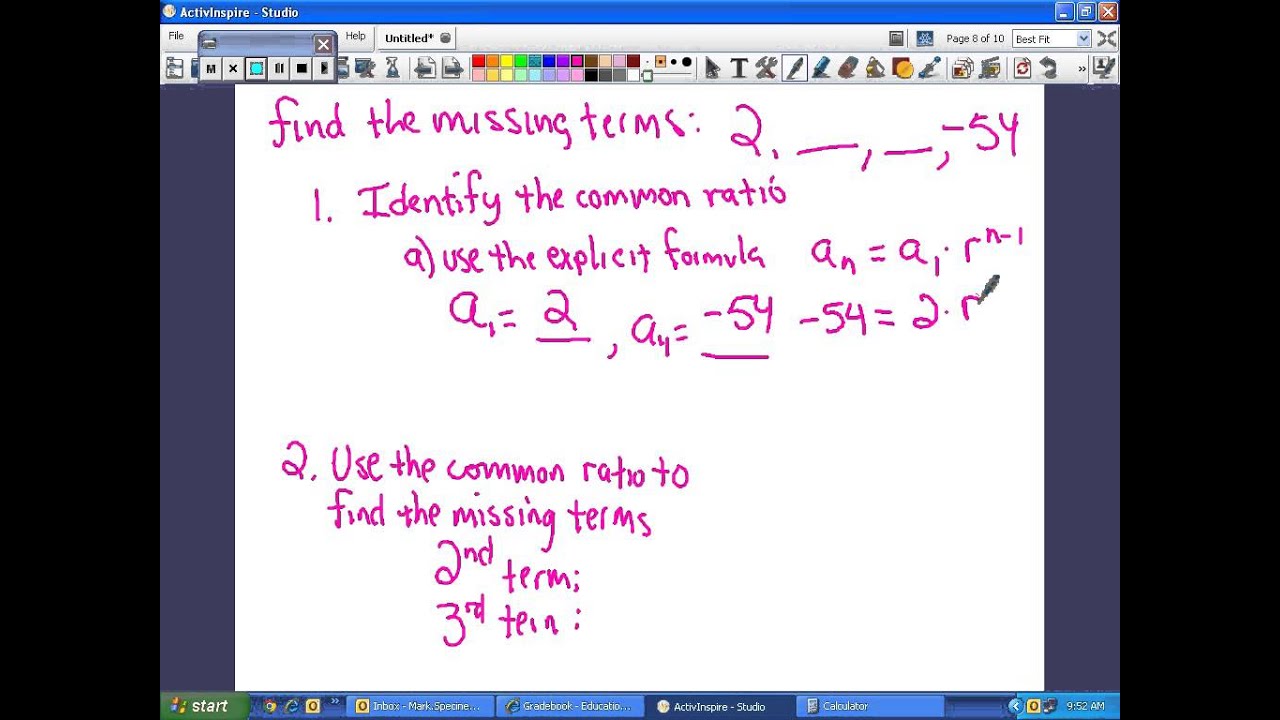 ActivInspire - Studio
File
Help
Untitled*
Page 8 of 10
Best Fit
M
T
find the missing terms: 2, __, __, -54
1. Identify the common ratio
a) use the explicit formula aₙ = a₁ · rⁿ⁻¹
a₁ = 2 , a₄ = -54 -54 = 2 · r
2. Use the common ratio to
find the missing terms
2nd term:
3rd term:
start
Inbox - Mark.Specine...
Gradebook - Educatio...
ActivInspire - Studio
Calculator
9:52 AM